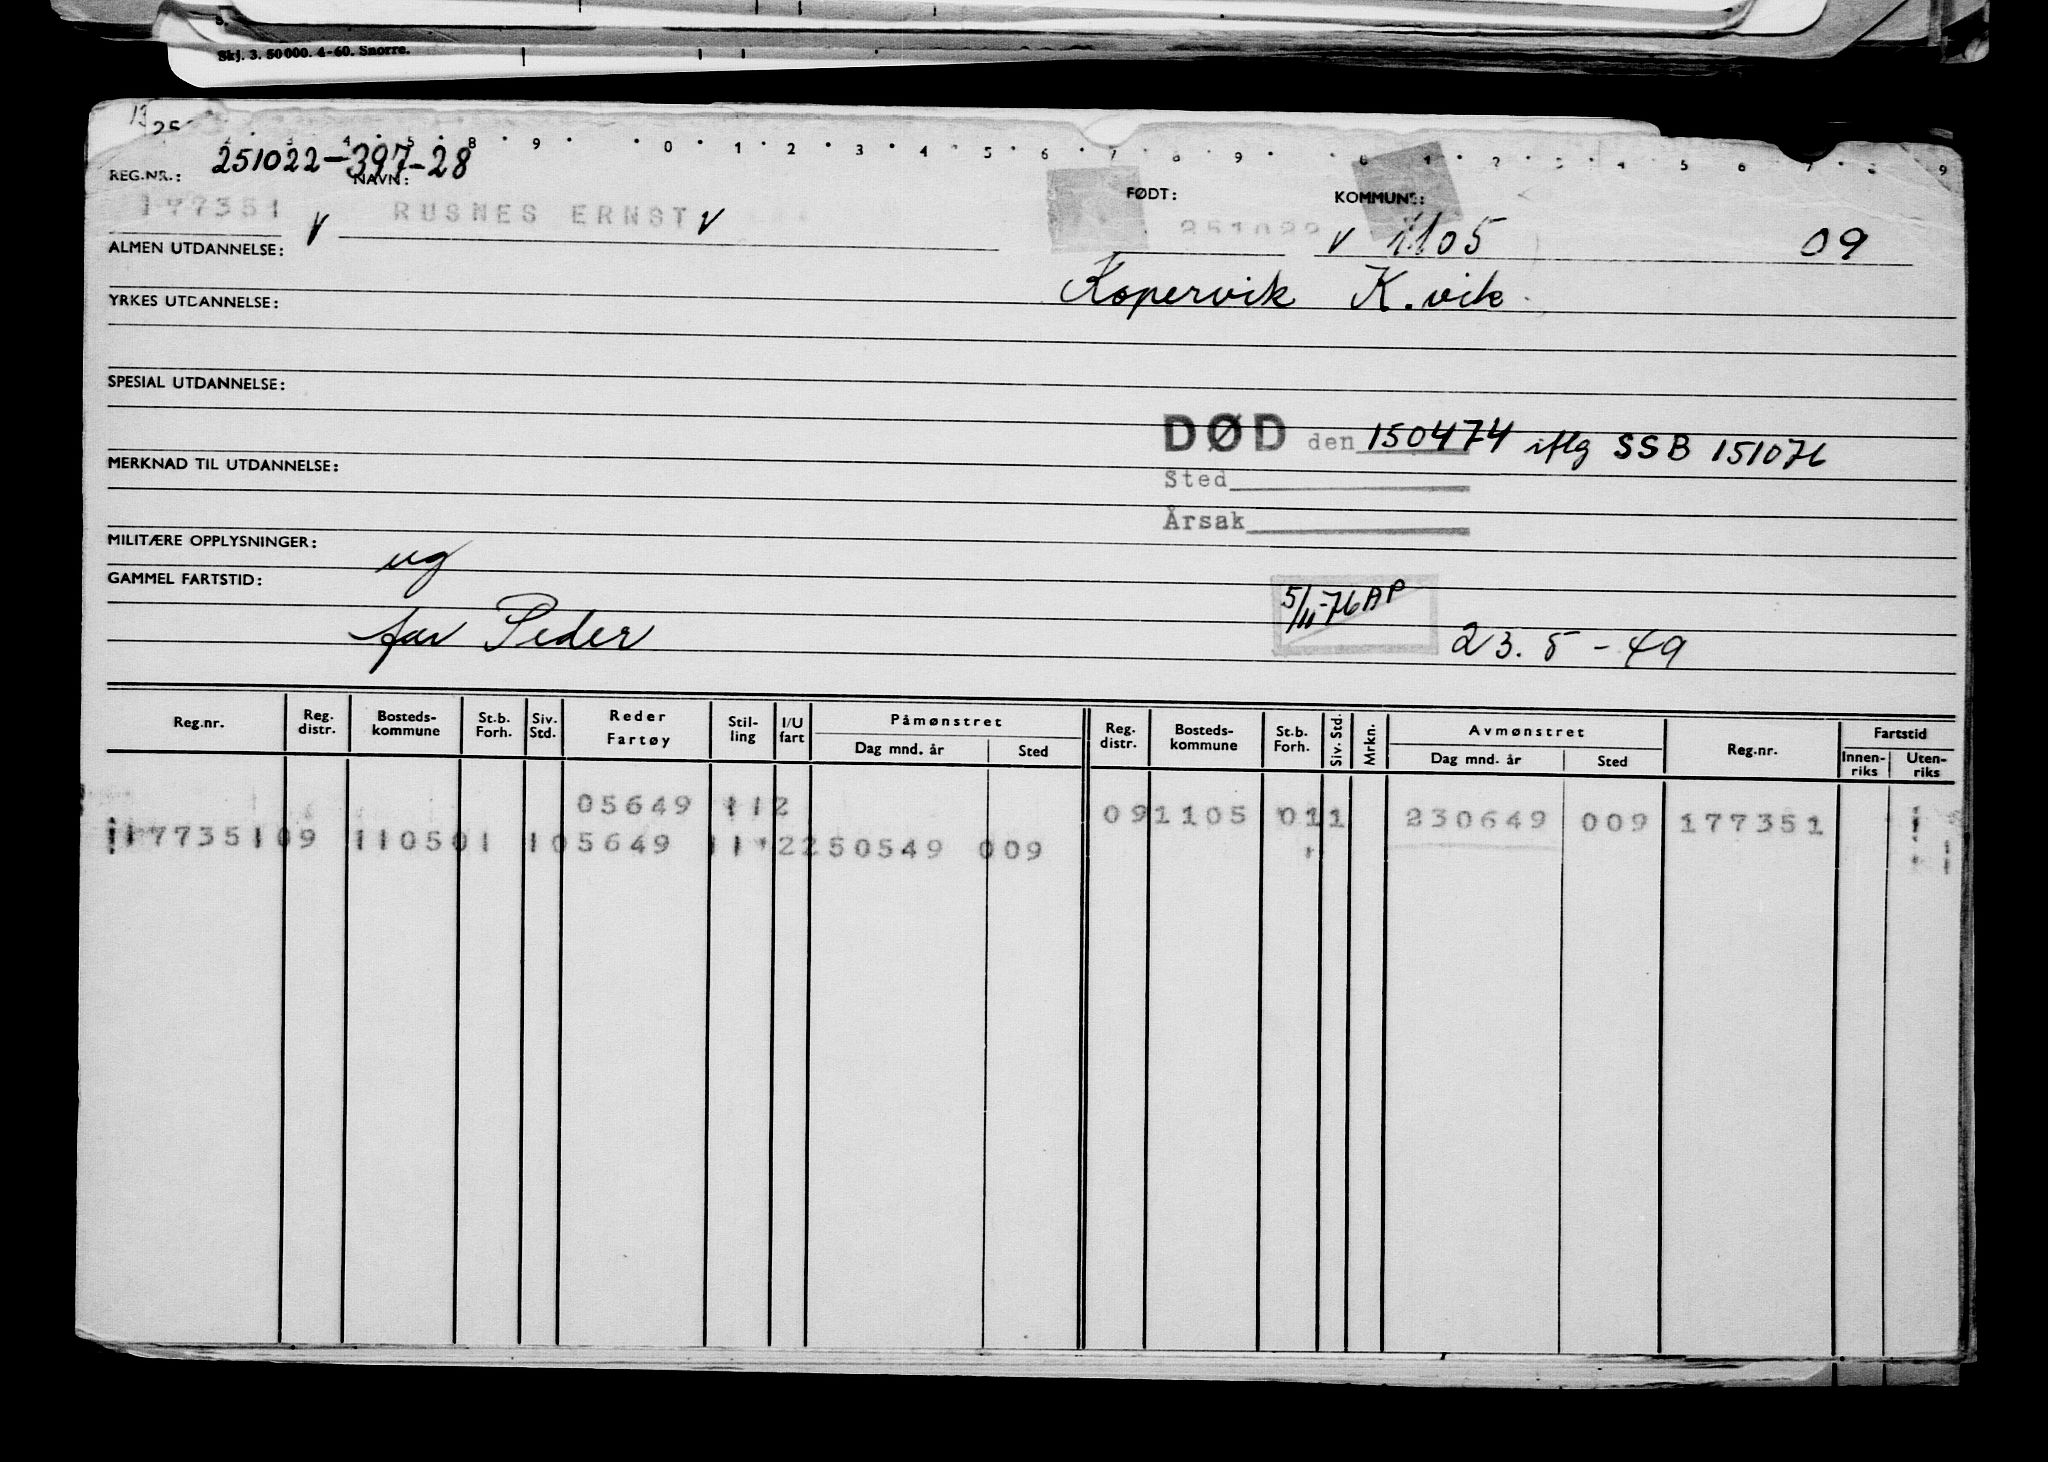 Skj. 3. 50 000. 4-60. Snorre.
9 0 1 2 3 4 5 6 7 8 9 1 2 5 6 7 8 9
REG.NR.: 251022-397-28 NAVN: FØDT: KOMMUNE:
177351 V RUSNES ERNST V 251022 V 1105 09
ALMEN UTDANNELSE:
Kopervik K.vik
YRKES UTDANNELSE:
SPESIAL UTDANNELSE:
DØD den 150474 iflg SSB 151076
MERKNAD TIL UTDANNELSE:
Sted
Årsak
MILITÆRE OPPLYSNINGER: ug
GAMMEL FARTSTID:
5/11-76 AP
far Peder 23.5-49
Reg.nr. Reg. distr. Bosteds-kommune St.b. Forh. Siv. Std. Reder Fartøy Stil-ling I/U fart Påmønstret Dag mnd. år Sted Reg. distr. Bosteds-kommune St.b. Forh. Siv. Std. Mrkn. Avmønstret Dag mnd. år Sted Reg.nr. Fartstid Innen-riks Uten-riks
05649 112 091105 011 230649 009 177351 1
17735109 110501 105649 11 2250549 009